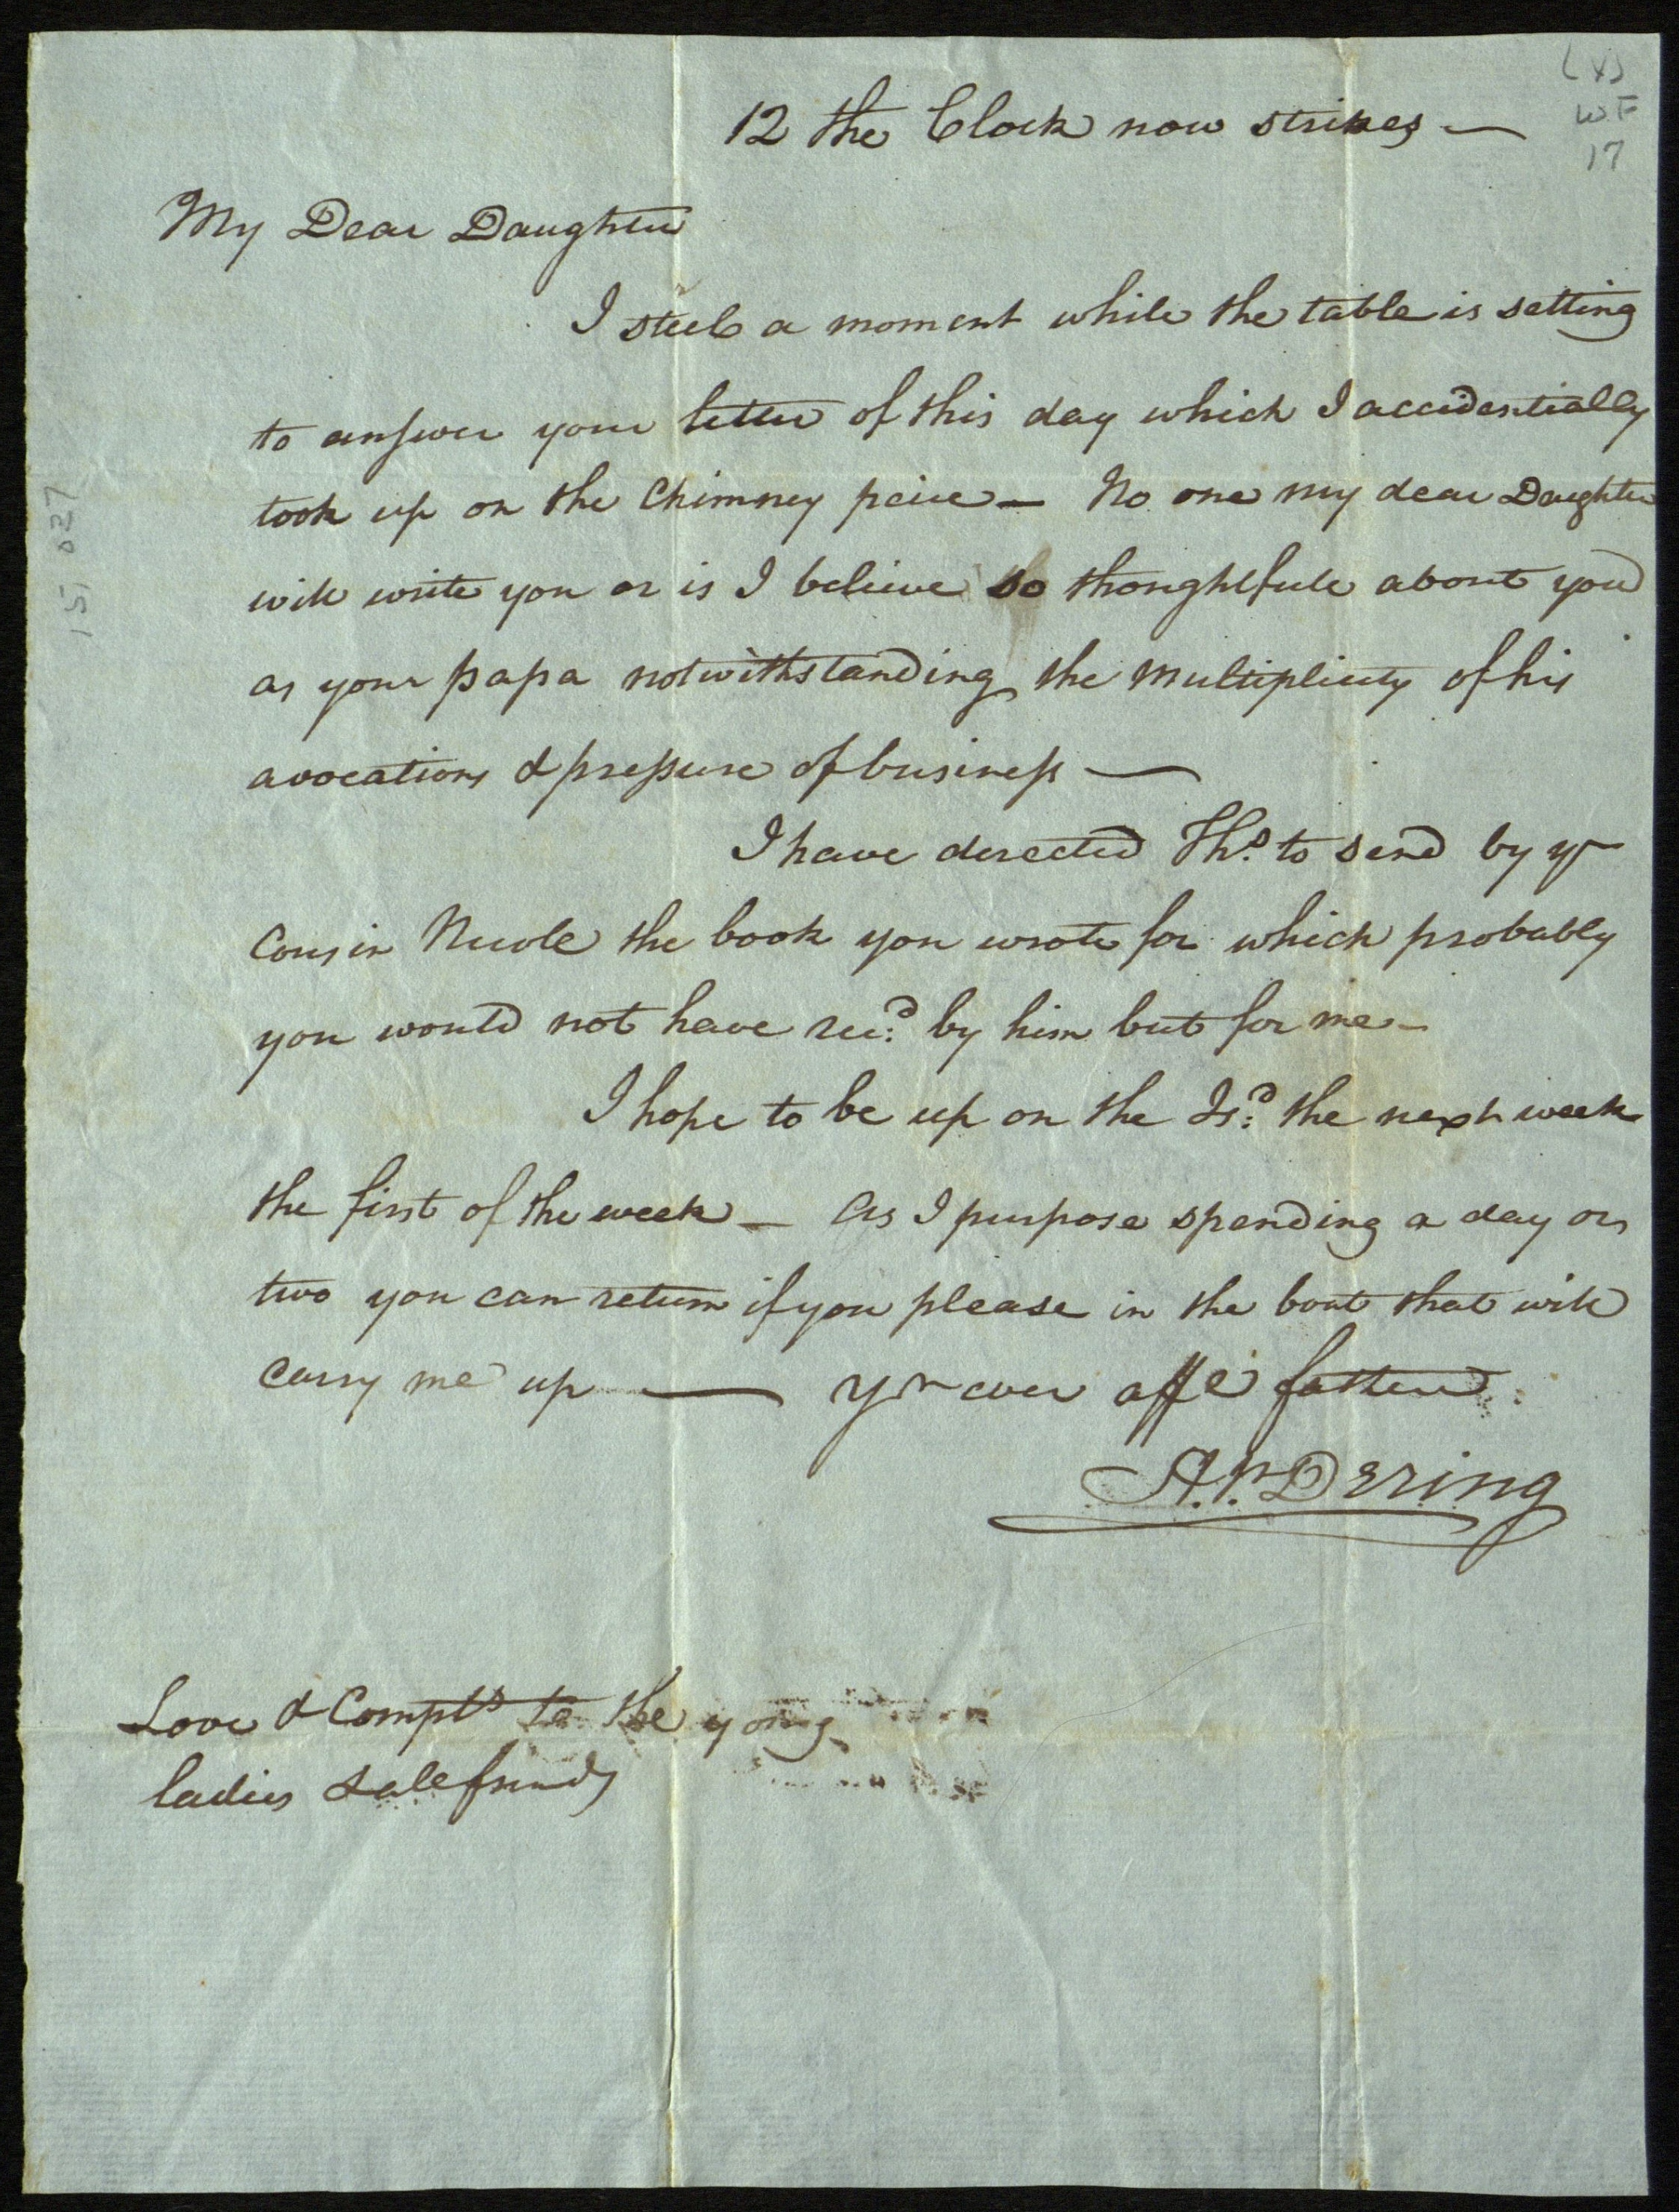 (X)
WF
17
12 the Clock now strikes —
My Dear Daughter
I steel a moment while the table is setting
to answer your letter of this day which I accidentially
took up on the Chimney peice — No one my dear Daughter
will write you or is I believe so thoughtfull about you
as your papa notwithstanding the multiplicity of his
avocations & pressure of business —
I have derected Thos. to send by yr
Cousin the book you wrote for which probably
you would not have recd. by him but for me —
I hope to be up on the Isd. the next week
the first of the week — As I purpose spending a day or
two you can return if you please in the boat that will
Carry me up — yr ever affe father
H.P. Dering
Love & Complts to the young
ladies & all friends
15, 027